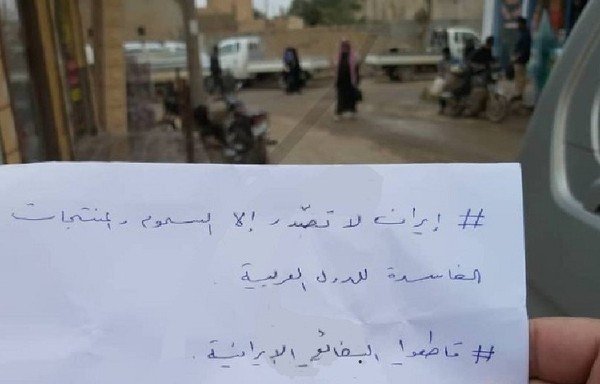 # إيران لا تصّدر إلا السموم والمنتجات
الفاسدة للدول العربية .
# قاطعوا البضائع الإيرانية .